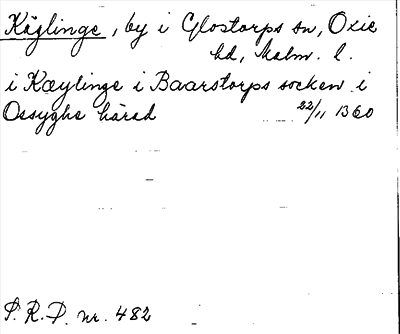 Käglinge, by i Glostorps sn, Oxie
hd, Malm. l.
i Kæylinge i Baarstorps socken i
Ossyghe härad 22/11 1360
S.R.P. nr. 482